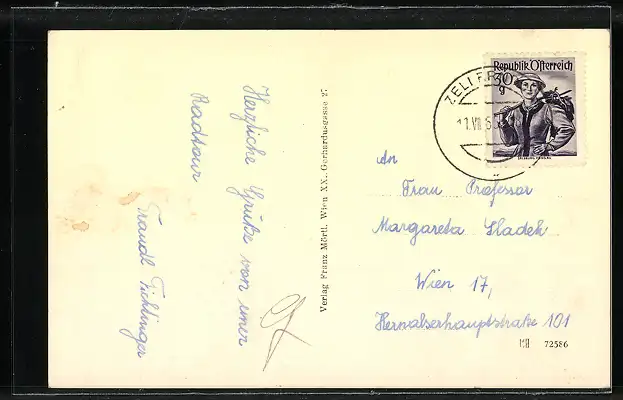 Herzliche Grüße von einer
Radtour
Traudl Fichtinger
Verlag Franz Mörtl, Wien XX., Gerhardusgasse 27
Republik Österreich
30
g
ZELL
An
Frau Professor
Margareta Sladek
Wien 17,
Hernalserhauptstraße 101
72586